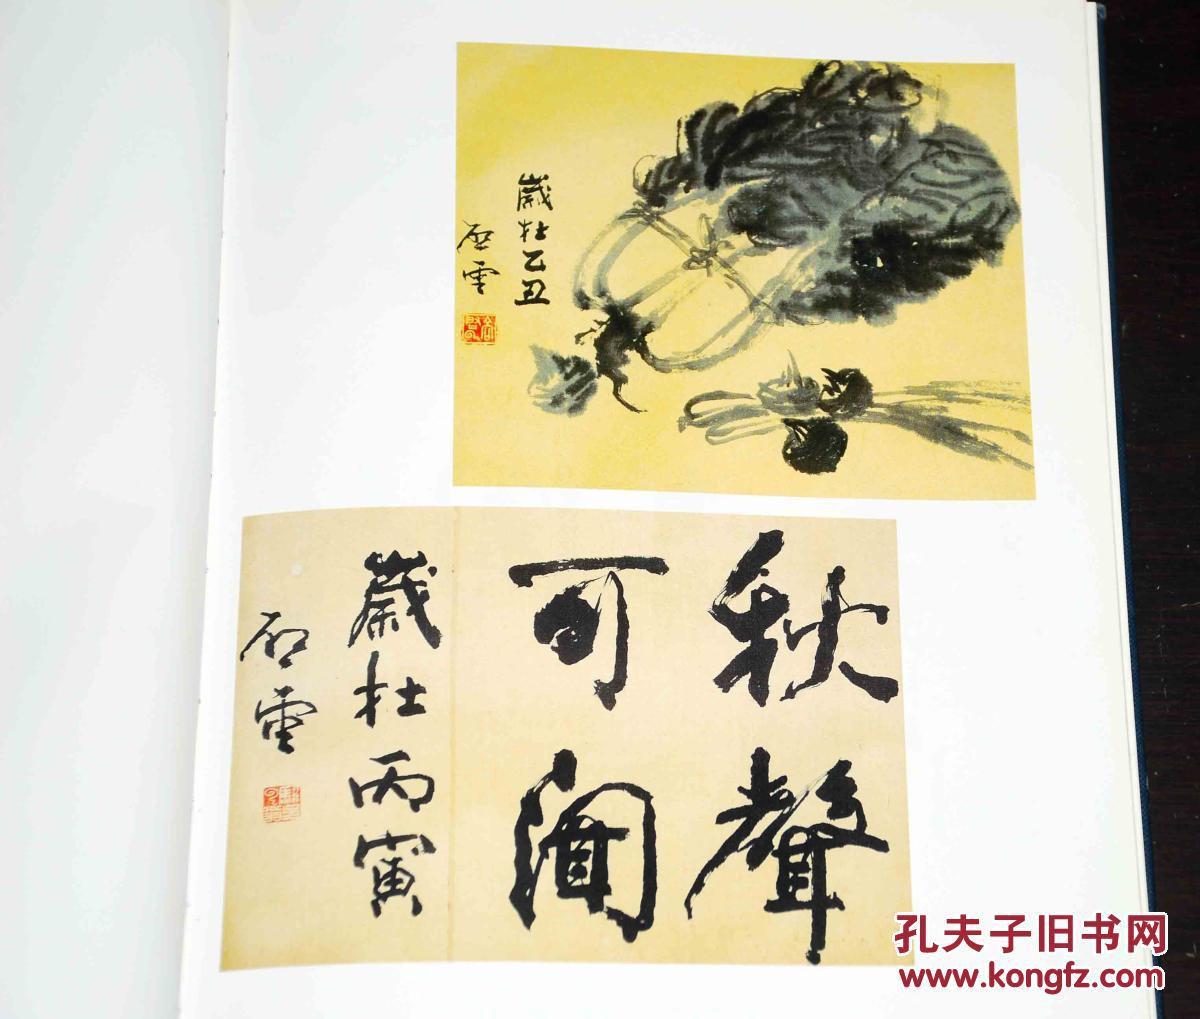 歲在乙丑
雲
秋聲
可聞
歲在丙寅
雲
孔夫子旧书网
www.kongfz.com